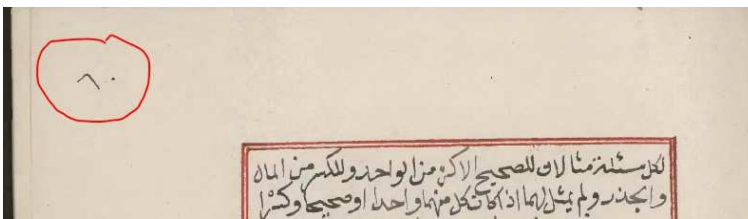 ٨٠
لكل مسئلة مثالان للصحيح الاكثر من الواحد وللكسر من المال
والجذر ولم يمثل لهما اذا كان كل منهما واحدا او صحيحا وكسرا